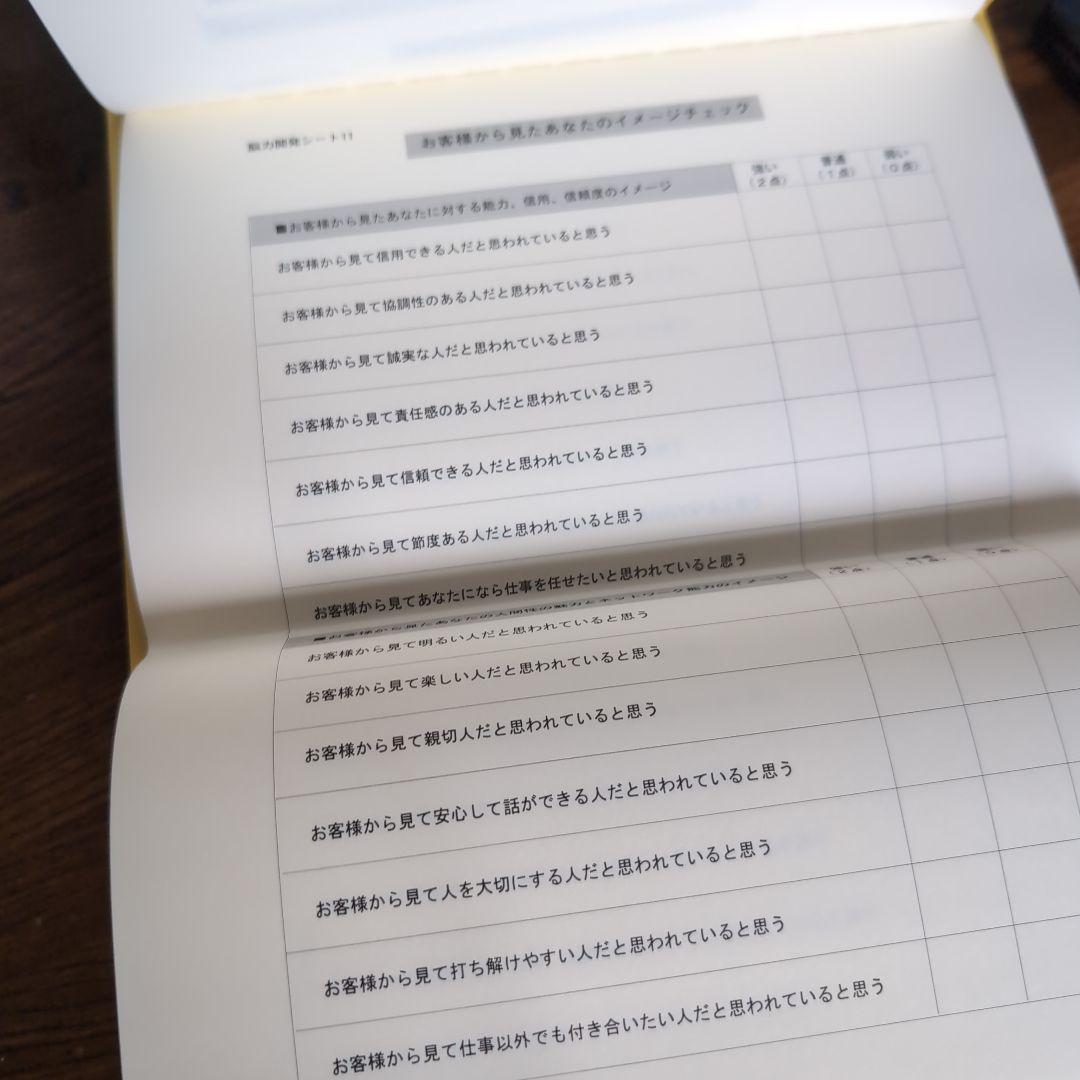 脳力開発シート11
お客様から見たあなたのイメージチェック
■お客様から見たあなたに対する能力、信用、信頼度のイメージ
強い（2点）
普通（1点）
弱い（0点）
お客様から見て信用できる人だと思われていると思う
お客様から見て協調性のある人だと思われていると思う
お客様から見て誠実な人だと思われていると思う
お客様から見て責任感のある人だと思われていると思う
お客様から見て信頼できる人だと思われていると思う
お客様から見て節度ある人だと思われていると思う
お客様から見てあなたになら仕事を任せたいと思われていると思う
■お客様から見たあなたの人間性の魅力とネットワーク能力のイメージ
お客様から見て明るい人だと思われていると思う
お客様から見て楽しい人だと思われていると思う
お客様から見て親切人だと思われていると思う
お客様から見て安心して話ができる人だと思われていると思う
お客様から見て人を大切にする人だと思われていると思う
お客様から見て打ち解けやすい人だと思われていると思う
お客様から見て仕事以外でも付き合いたい人だと思われていると思う